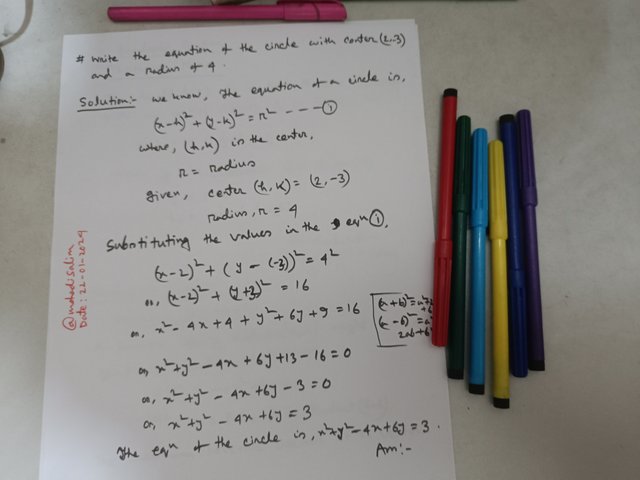 # write the equation of the circle with center (2,-3)
and a radius of 4.
Solution:- we know, the equation of a circle is,
(x-h)² + (y-k)² = r² --- ①
where, (h,k) is the center,
r = radius
given, center (h,k) = (2,-3)
radius, r = 4
Substituting the values in the eqⁿ ①,
(x-2)² + (y - (-3))² = 4²
or, (x-2)² + (y+3)² = 16
or, x² - 4x + 4 + y² + 6y + 9 = 16
or, x² + y² - 4x + 6y + 13 - 16 = 0
or, x² + y² - 4x + 6y - 3 = 0
or, x² + y² - 4x + 6y = 3
The eqⁿ of the circle is, x² + y² - 4x + 6y = 3.
Ans:-
(a+b)² = a²+2
(a-b)² = a²
2ab+b²
@mahadisalim
Date: 22-01-2024